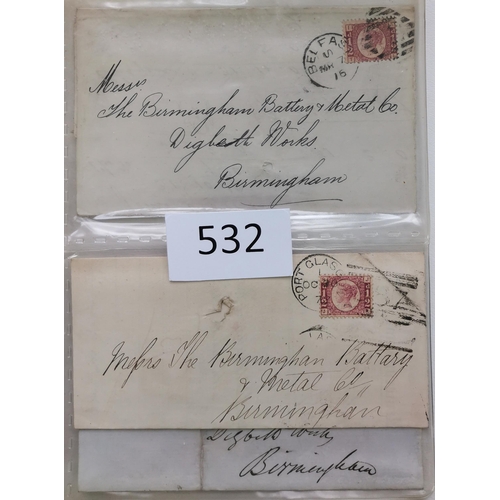 BELFAST
Messrs
The Birmingham Battery & Metal Co.
Digbeth Works.
Birmingham
532
PORT GLASG
Messrs The Birmingham Battary
& Metal Co
Birmingham
Digbeth Works
Birmingham